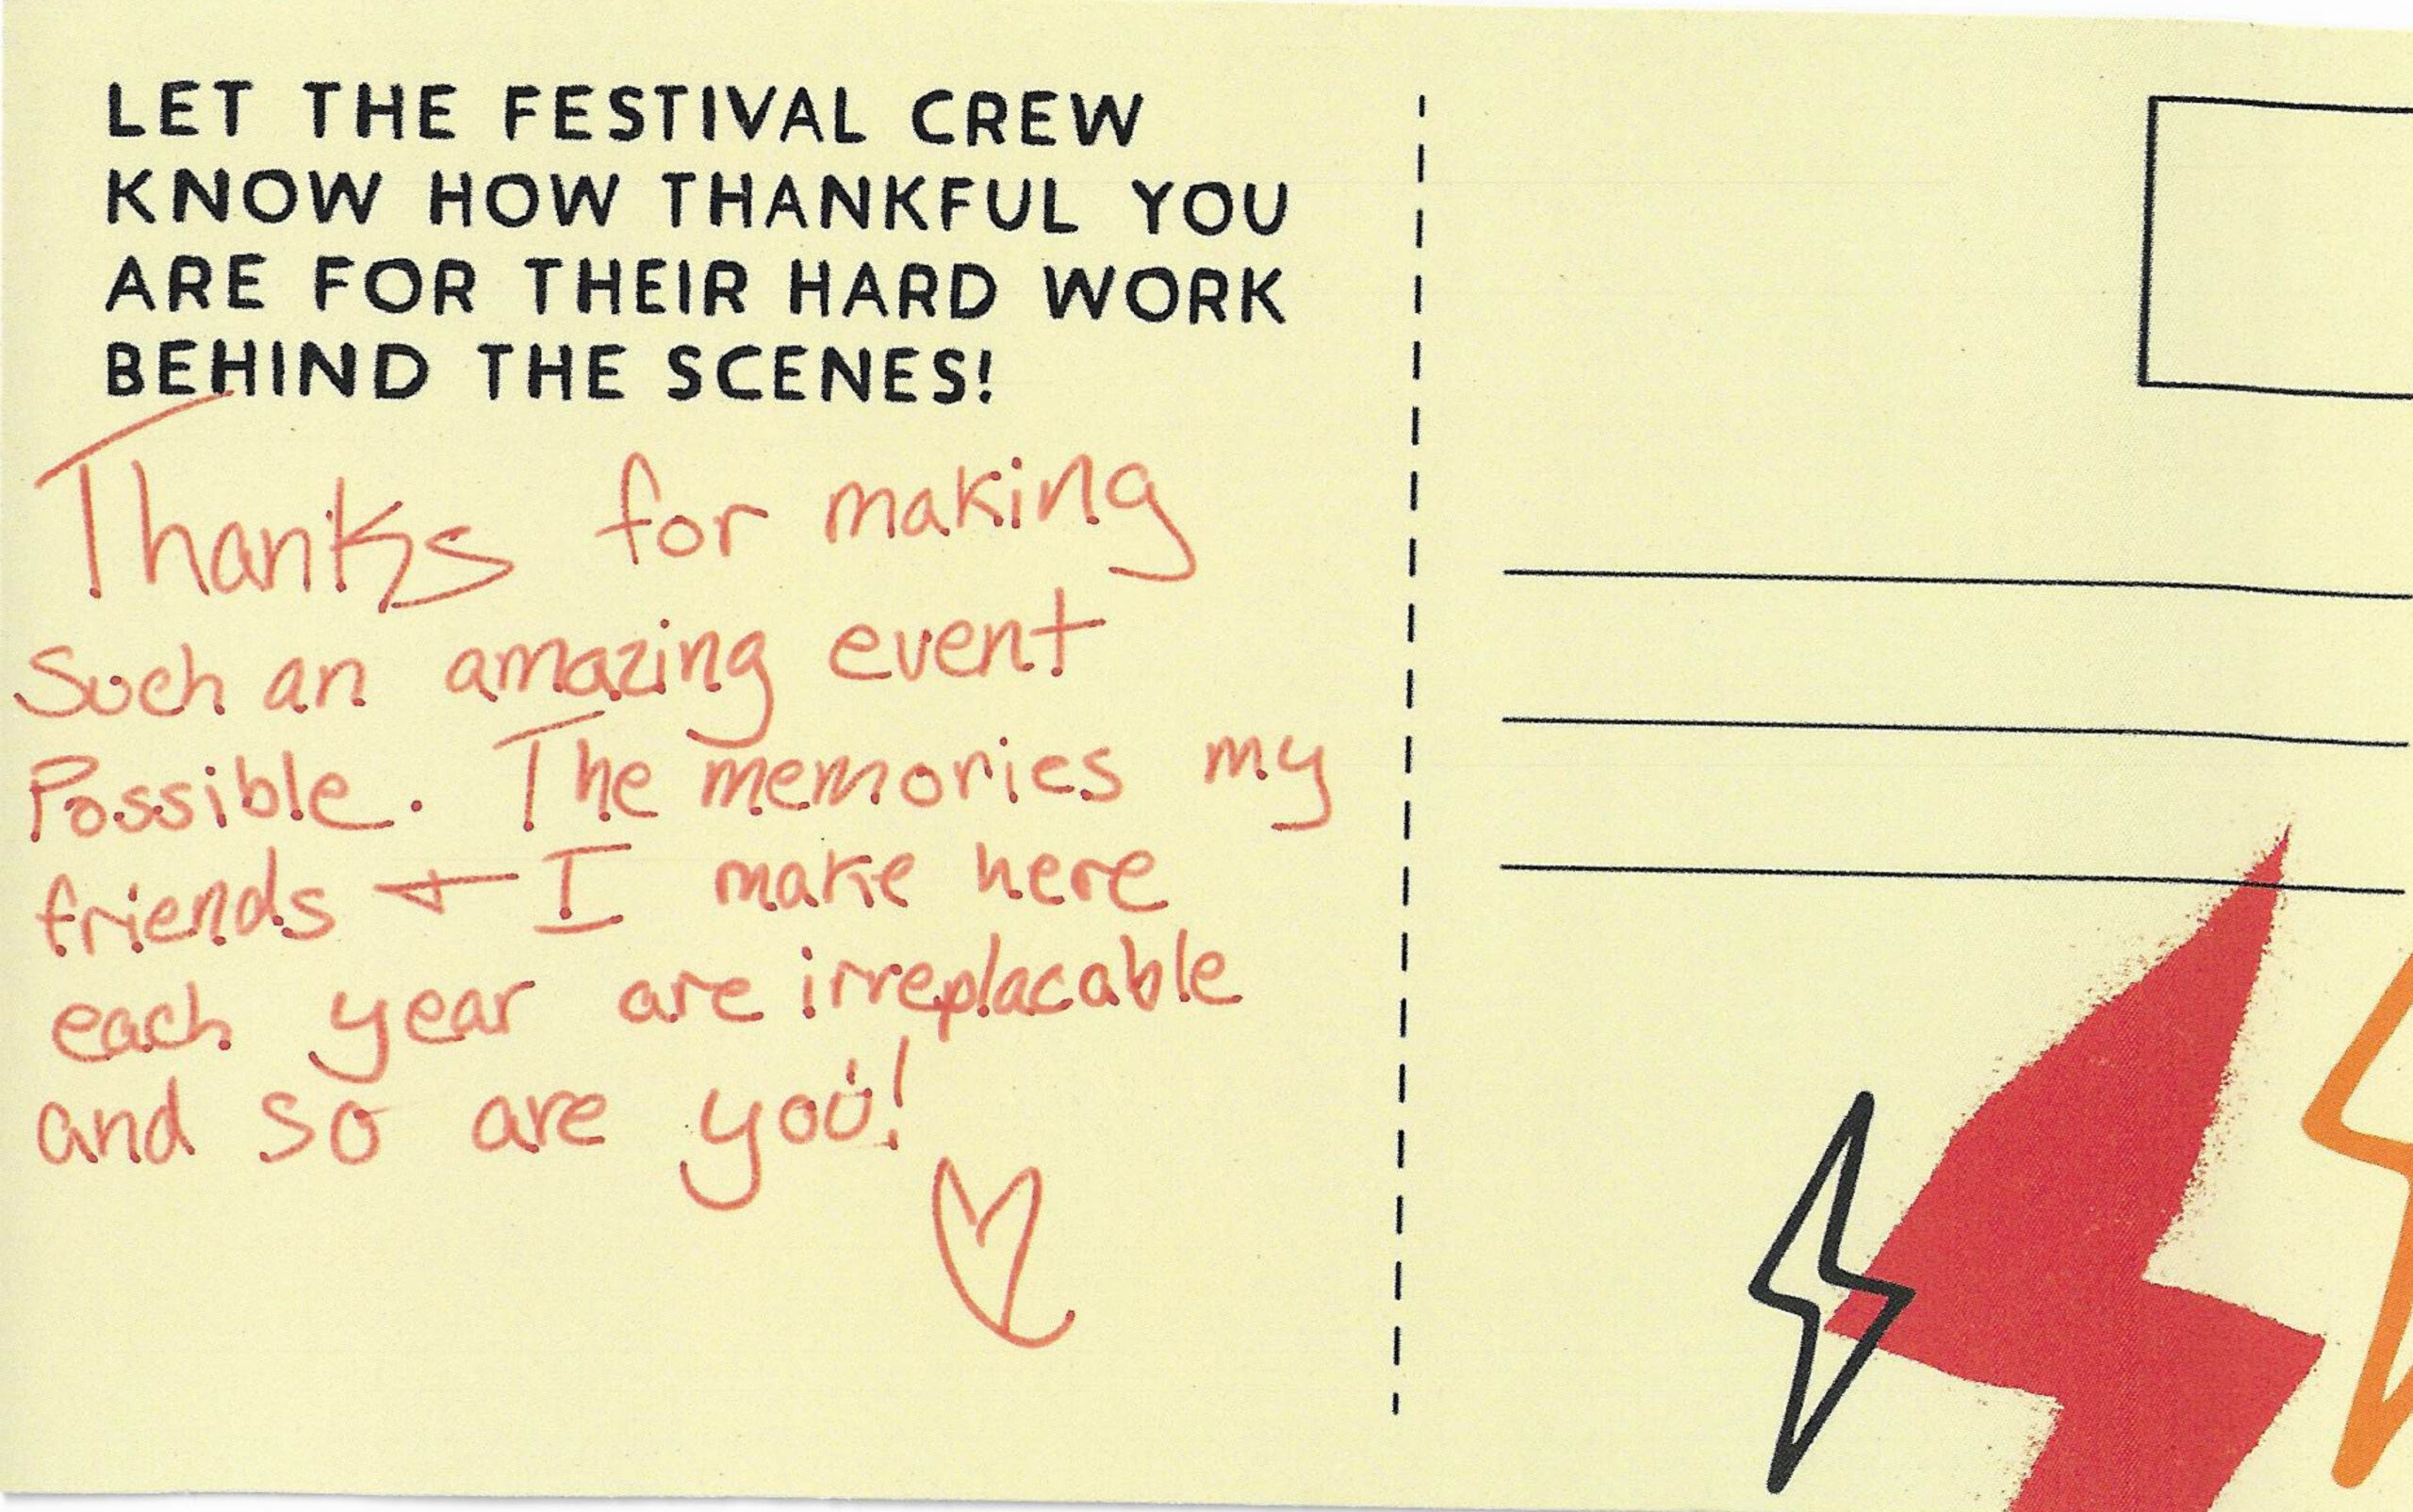 LET THE FESTIVAL CREW
KNOW HOW THANKFUL YOU
ARE FOR THEIR HARD WORK
BEHIND THE SCENES!
Thanks for making
Such an amazing event
Possible. The memories my
friends + I make here
each year are irreplacable
and so are you!